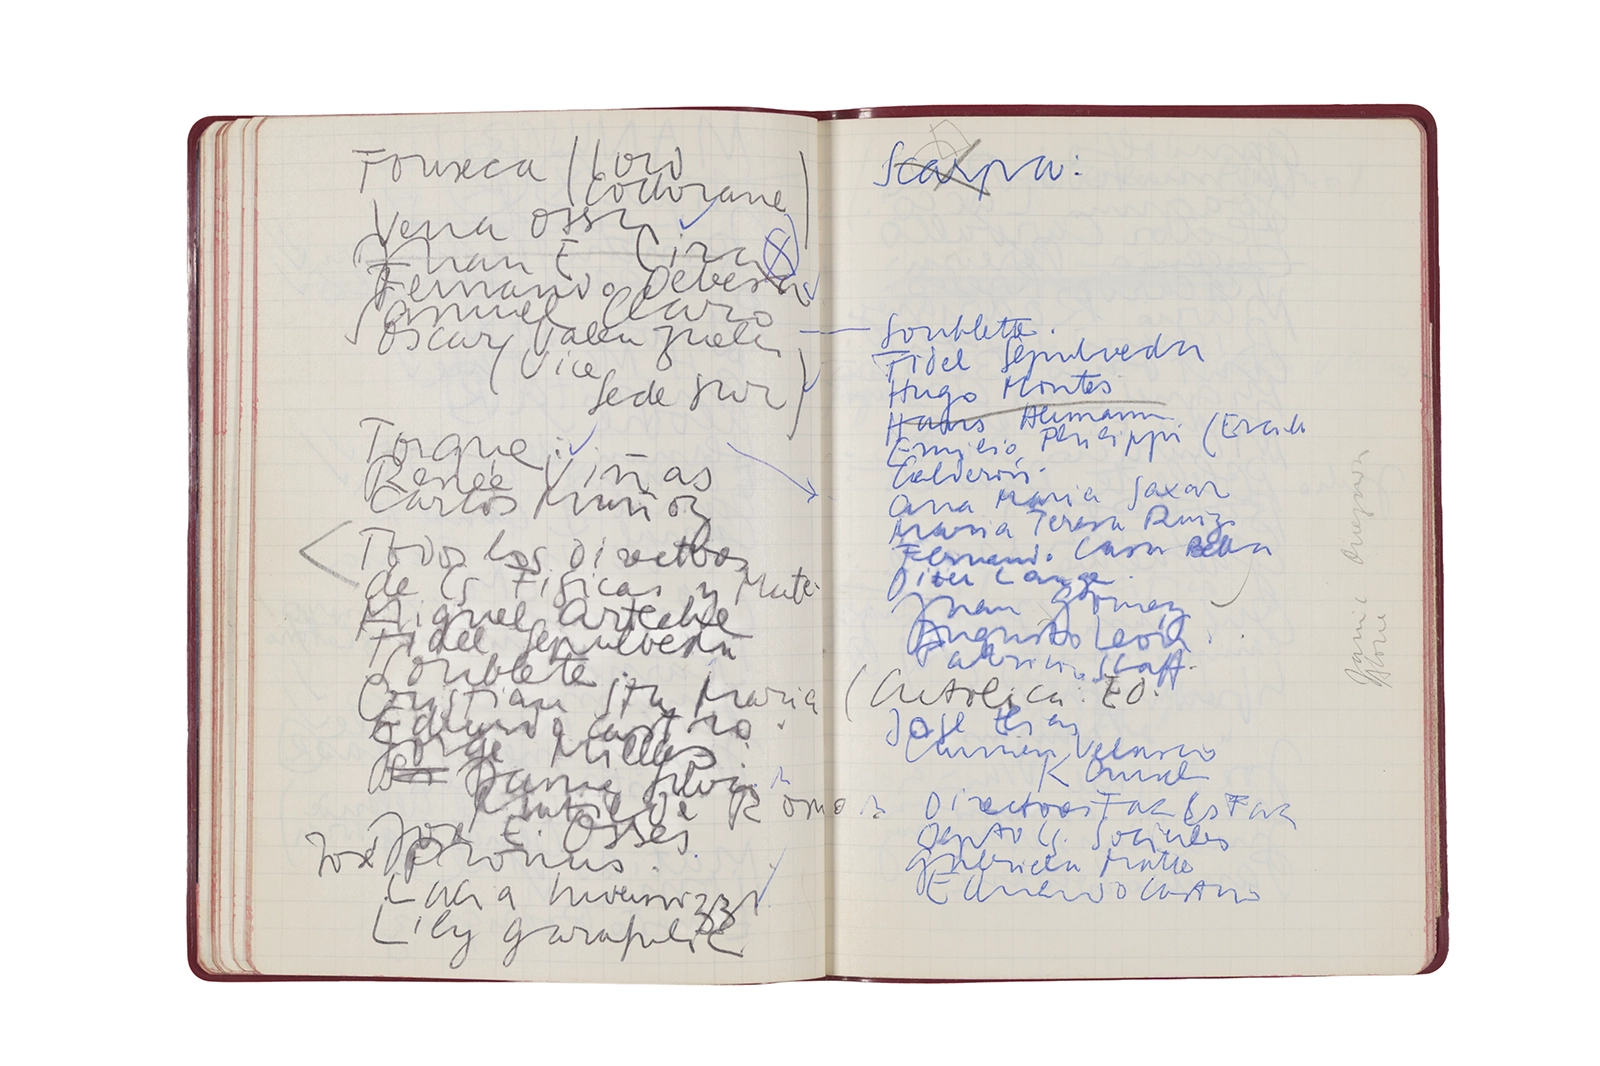 Fonseca (Loro
Codorane)
Vera Ossa
Juan E. Cira
Fernando Debesa
Samuel Claro
Oscar Valenzuela
(Vice
Sede Sur)
Torque:
Renée Viñas
Carlos Muñoz
Todos los Directores
de Cs Físicas y Mate
Miguel Arteche
Fidel Sepulveda
Soublette
Cristian Sta Maria
Edmundo Castro
Jorge Millas
Jaime Silva
de Romo
José E. Osses
José Promis
Lucia Invernizzi
Lily Garafulic
Scarpa:
Soublette.
Fidel Sepulveda
Hugo Montes
Hans Heumann
Emilio Philippi (Ercilla
Calderón
Ana Maria
Maria Teresa Ruiz
Fernando Casa Bella
Diter Lange
Juan Gómez
Augusto León
Patricio Staff.
(Católica: ED.
José
Carmen Velasco
K
Directores Fac Cs Fac
Depto Cs. Sociales
Gabriela Matte
Edmundo Castro
Jaime